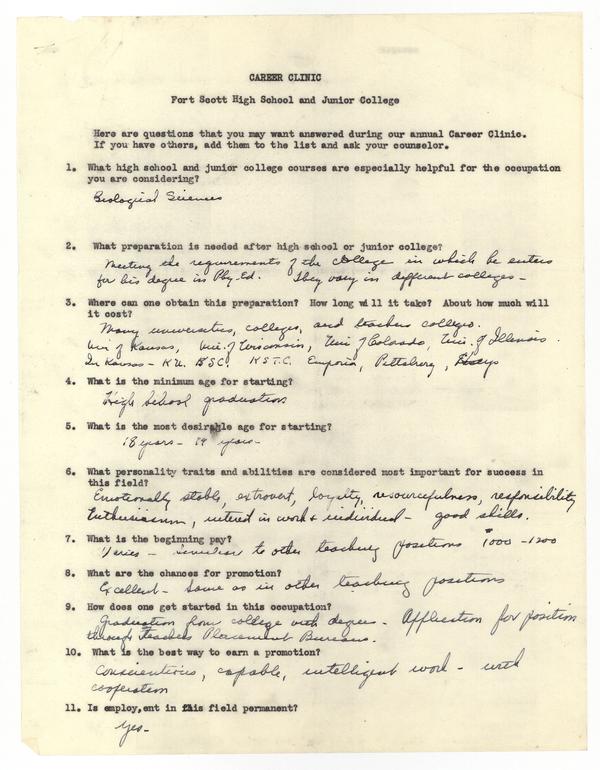 CAREER CLINIC
Fort Scott High School and Junior College
Here are questions that you may want answered during our annual Career Clinic.
If you have others, add them to the list and ask your counselor.
1. What high school and junior college courses are especially helpful for the occupation
you are considering?
Biological Sciences
2. What preparation is needed after high school or junior college?
Meeting the requirements of the college in which he enters
for his degree in Phy. Ed. They vary in different colleges -
3. Where can one obtain this preparation? How long will it take? About how much will
it cost?
Many universities, colleges, and teachers colleges.
Uni of Kansas, Uni. of Wisconsin, Uni of Colorado, Uni. of Illinois.
In Kansas - K.U. K.S.C. K.S.T.C. Emporia, Pittsburg, Hays
4. What is the minimum age for starting?
High School graduation
5. What is the most desirable age for starting?
18 years - 19 years -
6. What personality traits and abilities are considered most important for success in
this field?
Emotionally stable, extrovert, loyalty, resourcefulness, responsibility
Enthusiasm, interest in work & individual - good skills.
7. What is the beginning pay?
Varies - similar to other teaching positions $1000 - 1200
8. What are the chances for promotion?
Excellent - Same as in other teaching positions
9. How does one get started in this occupation?
Graduation from college with degree - Application for position
through Teachers Placement Bureaus.
10. What is the best way to earn a promotion?
Conscientious, capable, intelligent work - with
cooperation
11. Is employ,ent in this field permanent?
Yes -